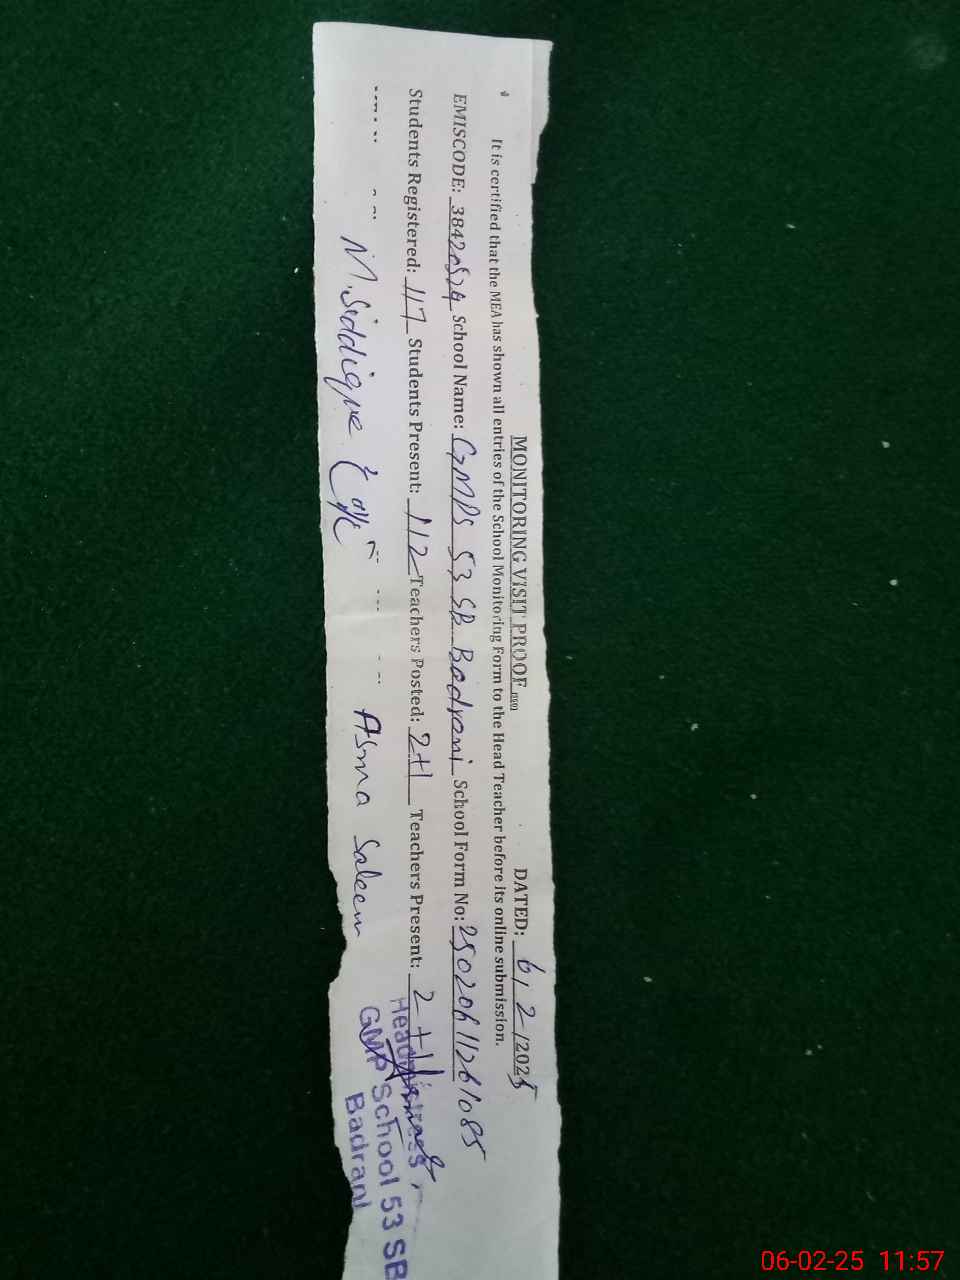 MONITORING VISIT PROOF
DATED: 6, 2 /2025
It is certified that the MEA has shown all entries of the School Monitoring Form to the Head Teacher before its online submission.
EMISCODE: 38420524 School Name: GMPS 53 SB Badrani School Form No: 25020611261085
Students Registered: 117 Students Present: 112 Teachers Posted: 2+1 Teachers Present: 2+1
M. Siddique
Asma Saleem
Headmistress
GMP School 53 SB
Badrani
06-02-25 11:57